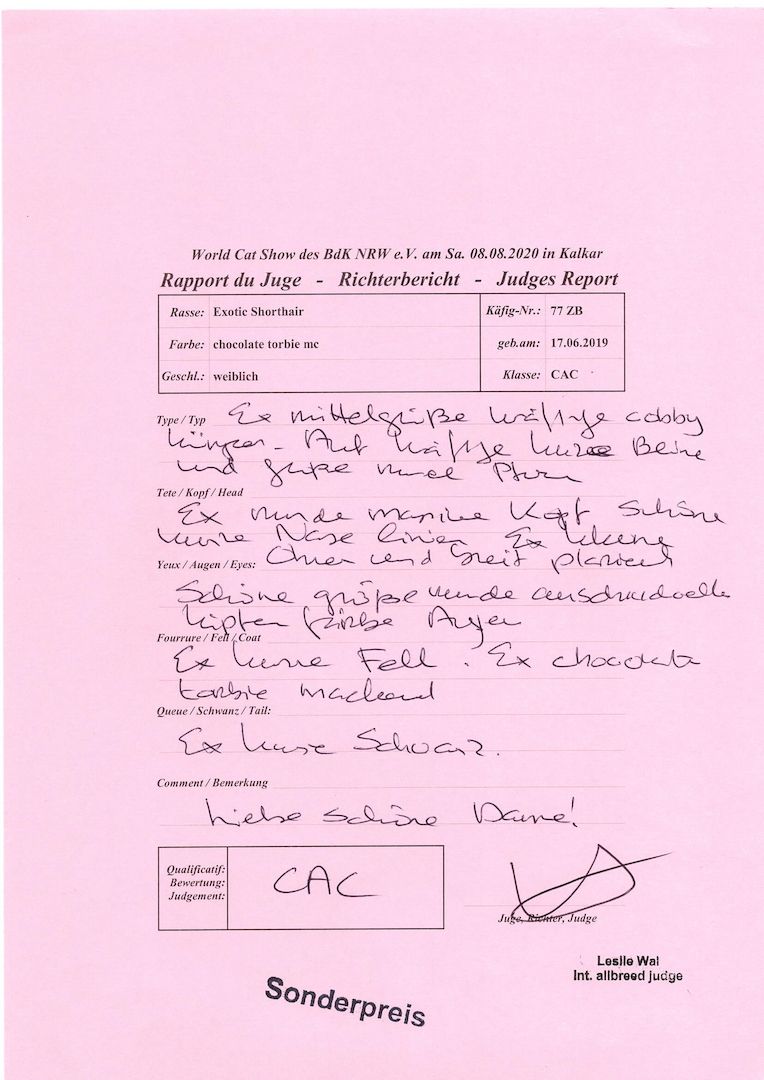 World Cat Show des BdK NRW e.V. am Sa. 08.08.2020 in Kalkar
Rapport du Juge - Richterbericht - Judges Report
Rasse: Exotic Shorthair Käfig-Nr.: 77 ZB
Farbe: chocolate torbie mc geb.am: 17.06.2019
Geschl.: weiblich Klasse: CAC
Type / Typ Ex mittelgröße kräftige cobby
Auf kräftige kurze Beine
und große runde
Tete / Kopf / Head
Ex runde massive Kopf Schöne
kurze Nase linien Ex kleine
Yeux / Augen / Eyes: Ohren und breit plaziert
Schöne große runde
Augen
Fourrure / Fell / Coat
Ex kurze Fell. Ex chocolate
torbie
Queue / Schwanz / Tail:
Ex kurze Schwanz.
Comment / Bemerkung
Liebe schöne Dame!
Qualificatif:
Bewertung: CAC
Judgement:
Juge, Richter, Judge
Leslie Wal
Int. allbreed judge
Sonderpreis